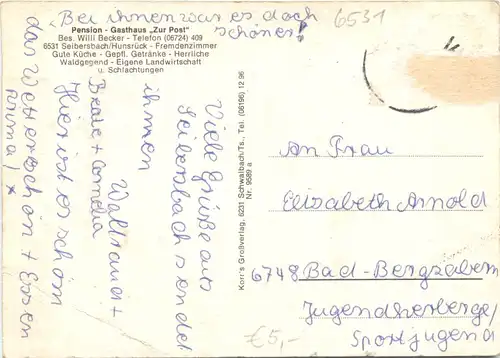 Pension - Gasthaus „Zur Post"
Bes. Willi Becker - Telefon (06724) 409
6531 Seibersbach/Hunsrück - Fremdenzimmer
Gute Küche - Gepfl. Getränke - Herrliche
Waldgegend - Eigene Landwirtschaft
u. Schlachtungen
Viele Grüße aus
Seibersbach sendet
ihnen
Waltraud +
Beate + Cornelia
Hier ist es schön
das Wetter schön + Essen
prima, *
"Bei ihnen war es doch
schöner!
6531
Korr's Großverlag, 6231 Schwalbach/Ts., Tel. (06196) 12 96
Nr. 9589 a
An Frau
Elisabeth Arnold
6748 Bad-Bergzabern
Jugendherberge/
Sportjugend
€5,-